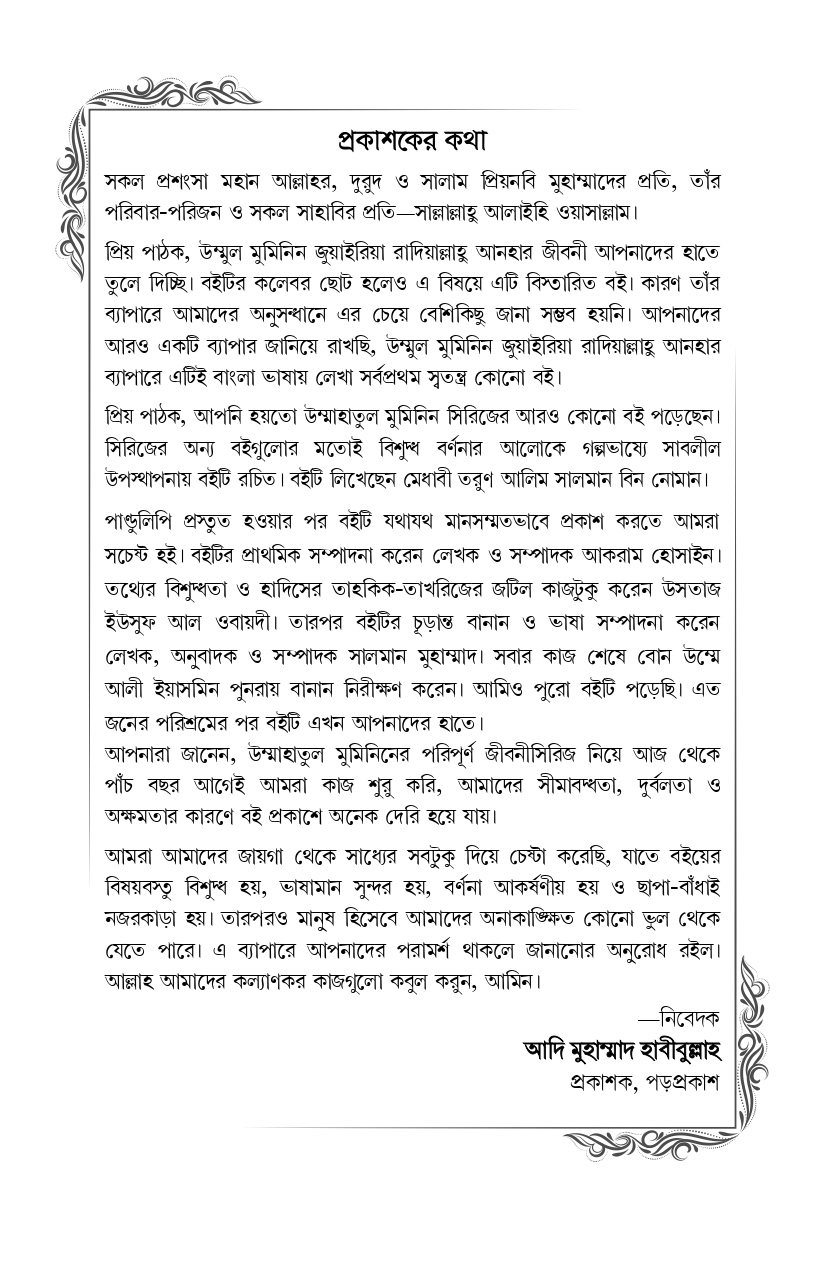 প্রকাশকের কথা
সকল প্রশংসা মহান আল্লাহর, দুরুদ ও সালাম প্রিয়নবি মুহাম্মাদের প্রতি, তাঁর
পরিবার-পরিজন ও সকল সাহাবির প্রতি—সাল্লাল্লাহু আলাইহি ওয়াসাল্লাম।
প্রিয় পাঠক, উম্মুল মুমিনিন জুয়াইরিয়া রাদিয়াল্লাহু আনহার জীবনী আপনাদের হাতে
তুলে দিচ্ছি। বইটির কলেবর ছোট হলেও এ বিষয়ে এটি বিস্তারিত বই। কারণ তাঁর
ব্যাপারে আমাদের অনুসন্ধানে এর চেয়ে বেশিকিছু জানা সম্ভব হয়নি। আপনাদের
আরও একটি ব্যাপার জানিয়ে রাখছি, উম্মুল মুমিনিন জুয়াইরিয়া রাদিয়াল্লাহু আনহার
ব্যাপারে এটিই বাংলা ভাষায় লেখা সর্বপ্রথম স্বতন্ত্র কোনো বই।
প্রিয় পাঠক, আপনি হয়তো উম্মাহাতুল মুমিনিন সিরিজের আরও কোনো বই পড়েছেন।
সিরিজের অন্য বইগুলোর মতোই বিশুদ্ধ বর্ণনার আলোকে গল্পভাষ্যে সাবলীল
উপস্থাপনায় বইটি রচিত। বইটি লিখেছেন মেধাবী তরুণ আলিম সালমান বিন নোমান।
পাণ্ডুলিপি প্রস্তুত হওয়ার পর বইটি যথাযথ মানসম্মতভাবে প্রকাশ করতে আমরা
সচেষ্ট হই। বইটির প্রাথমিক সম্পাদনা করেন লেখক ও সম্পাদক আকরাম হোসাইন।
তথ্যের বিশুদ্ধতা ও হাদিসের তাহকিক-তাখরিজের জটিল কাজটুকু করেন উসতাজ
ইউসুফ আল ওবায়দী। তারপর বইটির চূড়ান্ত বানান ও ভাষা সম্পাদনা করেন
লেখক, অনুবাদক ও সম্পাদক সালমান মুহাম্মাদ। সবার কাজ শেষে বোন উম্মে
আলী ইয়াসমিন পুনরায় বানান নিরীক্ষণ করেন। আমিও পুরো বইটি পড়েছি। এত
জনের পরিশ্রমের পর বইটি এখন আপনাদের হাতে।
আপনারা জানেন, উম্মাহাতুল মুমিনিনের পরিপূর্ণ জীবনীসিরিজ নিয়ে আজ থেকে
পাঁচ বছর আগেই আমরা কাজ শুরু করি, আমাদের সীমাবদ্ধতা, দুর্বলতা ও
অক্ষমতার কারণে বই প্রকাশে অনেক দেরি হয়ে যায়।
আমরা আমাদের জায়গা থেকে সাধ্যের সবটুকু দিয়ে চেষ্টা করেছি, যাতে বইয়ের
বিষয়বস্তু বিশুদ্ধ হয়, ভাষামান সুন্দর হয়, বর্ণনা আকর্ষণীয় হয় ও ছাপা-বাঁধাই
নজরকাড়া হয়। তারপরও মানুষ হিসেবে আমাদের অনাকাঙ্ক্ষিত কোনো ভুল থেকে
যেতে পারে। এ ব্যাপারে আপনাদের পরামর্শ থাকলে জানানোর অনুরোধ রইল।
আল্লাহ আমাদের কল্যাণকর কাজগুলো কবুল করুন, আমিন।
—নিবেদক
আদি মুহাম্মাদ হাবীবুল্লাহ
প্রকাশক, পড়প্রকাশ